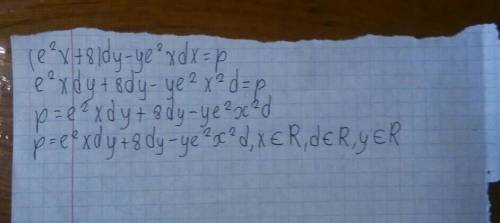 (e²x+8)dy-ye²xdx=p
e²xdy+8dy-ye²x²d=p
p=e²xdy+8dy-ye²x²d
p=e²xdy+8dy-ye²x²d,x∈R,d∈R,y∈R